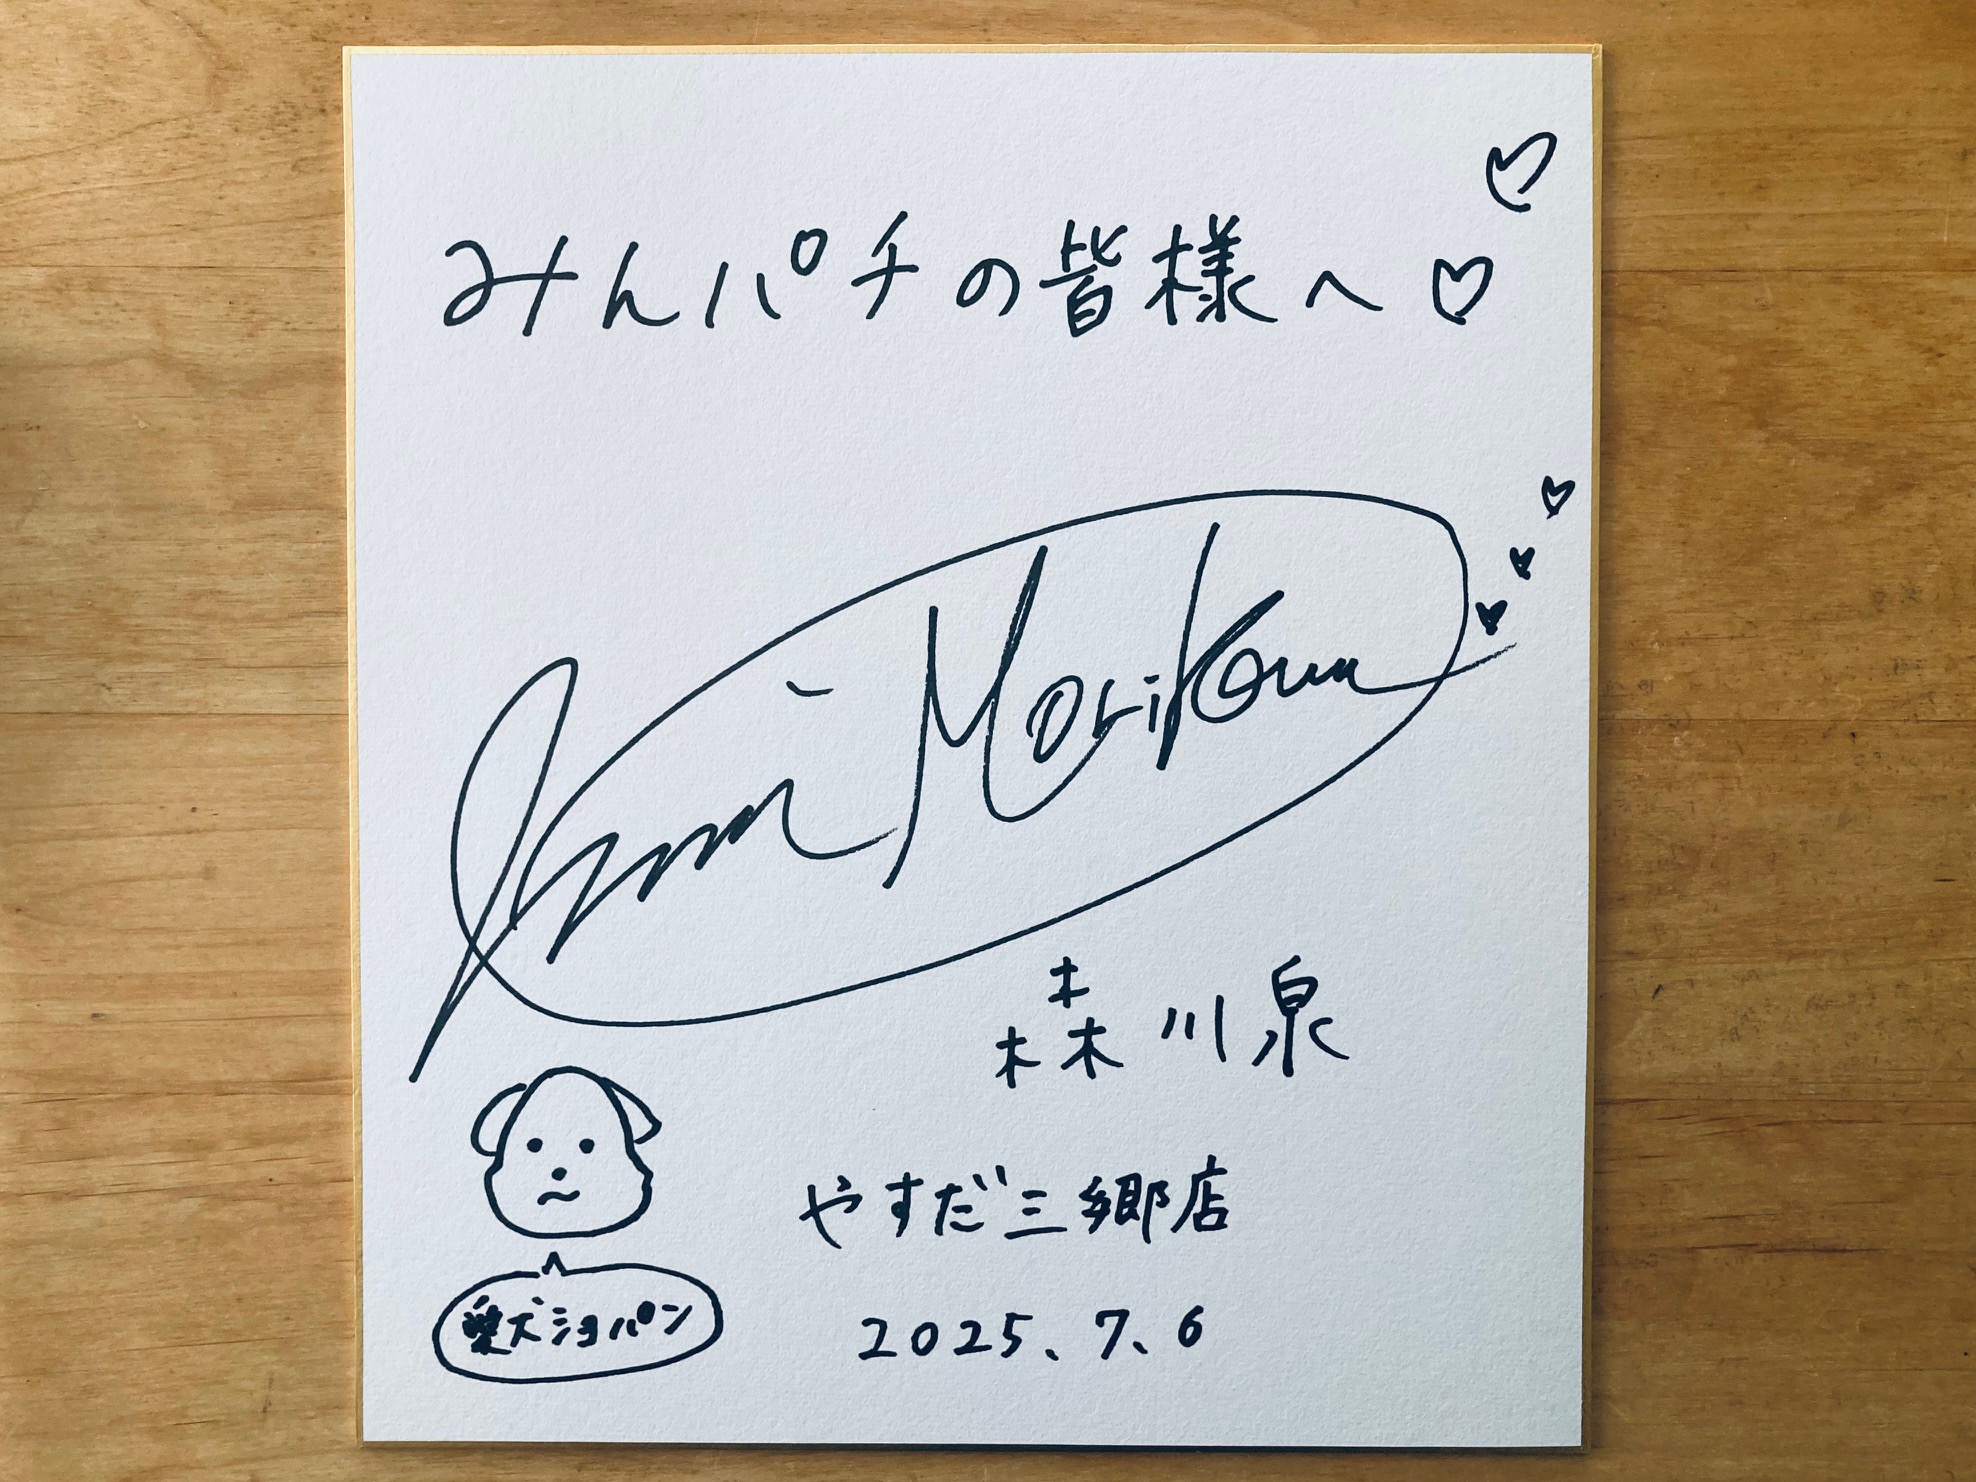 みんパチの皆様へ♡♡
Izumi Morikawa
森川泉
やすだ三郷店
愛犬ショパン
2025.7.6